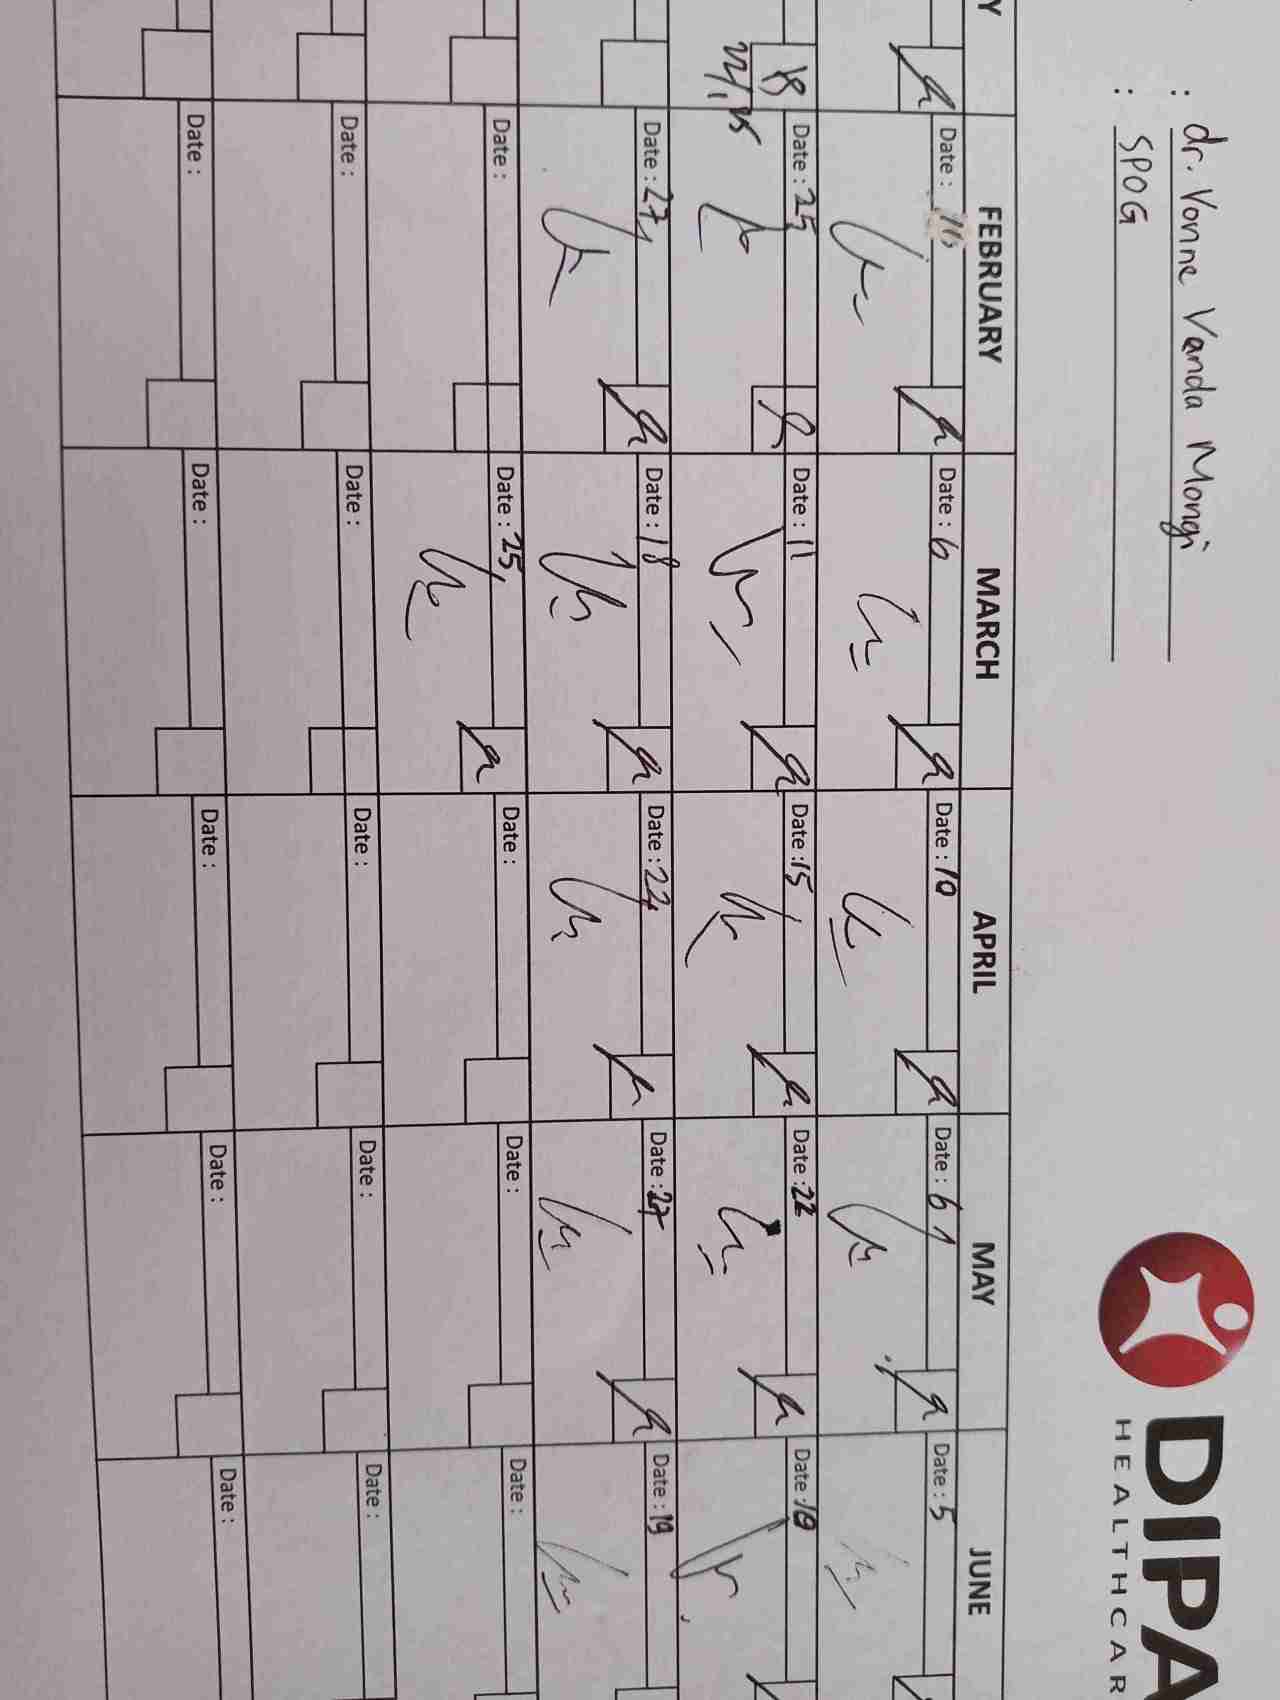 : dr. Vonne Vanda Mongi
: SPOG
DIPA
HEALTHCAR
Y FEBRUARY MARCH APRIL MAY JUNE
Date : Date : 6 Date : 10 Date : 6 Date : 5
Date : 25 Date : 11 Date : 15 Date : 22 Date : 10
Date : 27 Date : 18 Date : 22 Date : 27 Date : 19
Date : Date : 25 Date : Date : Date :
Date : Date : Date : Date : Date :
Date : Date : Date : Date : Date :